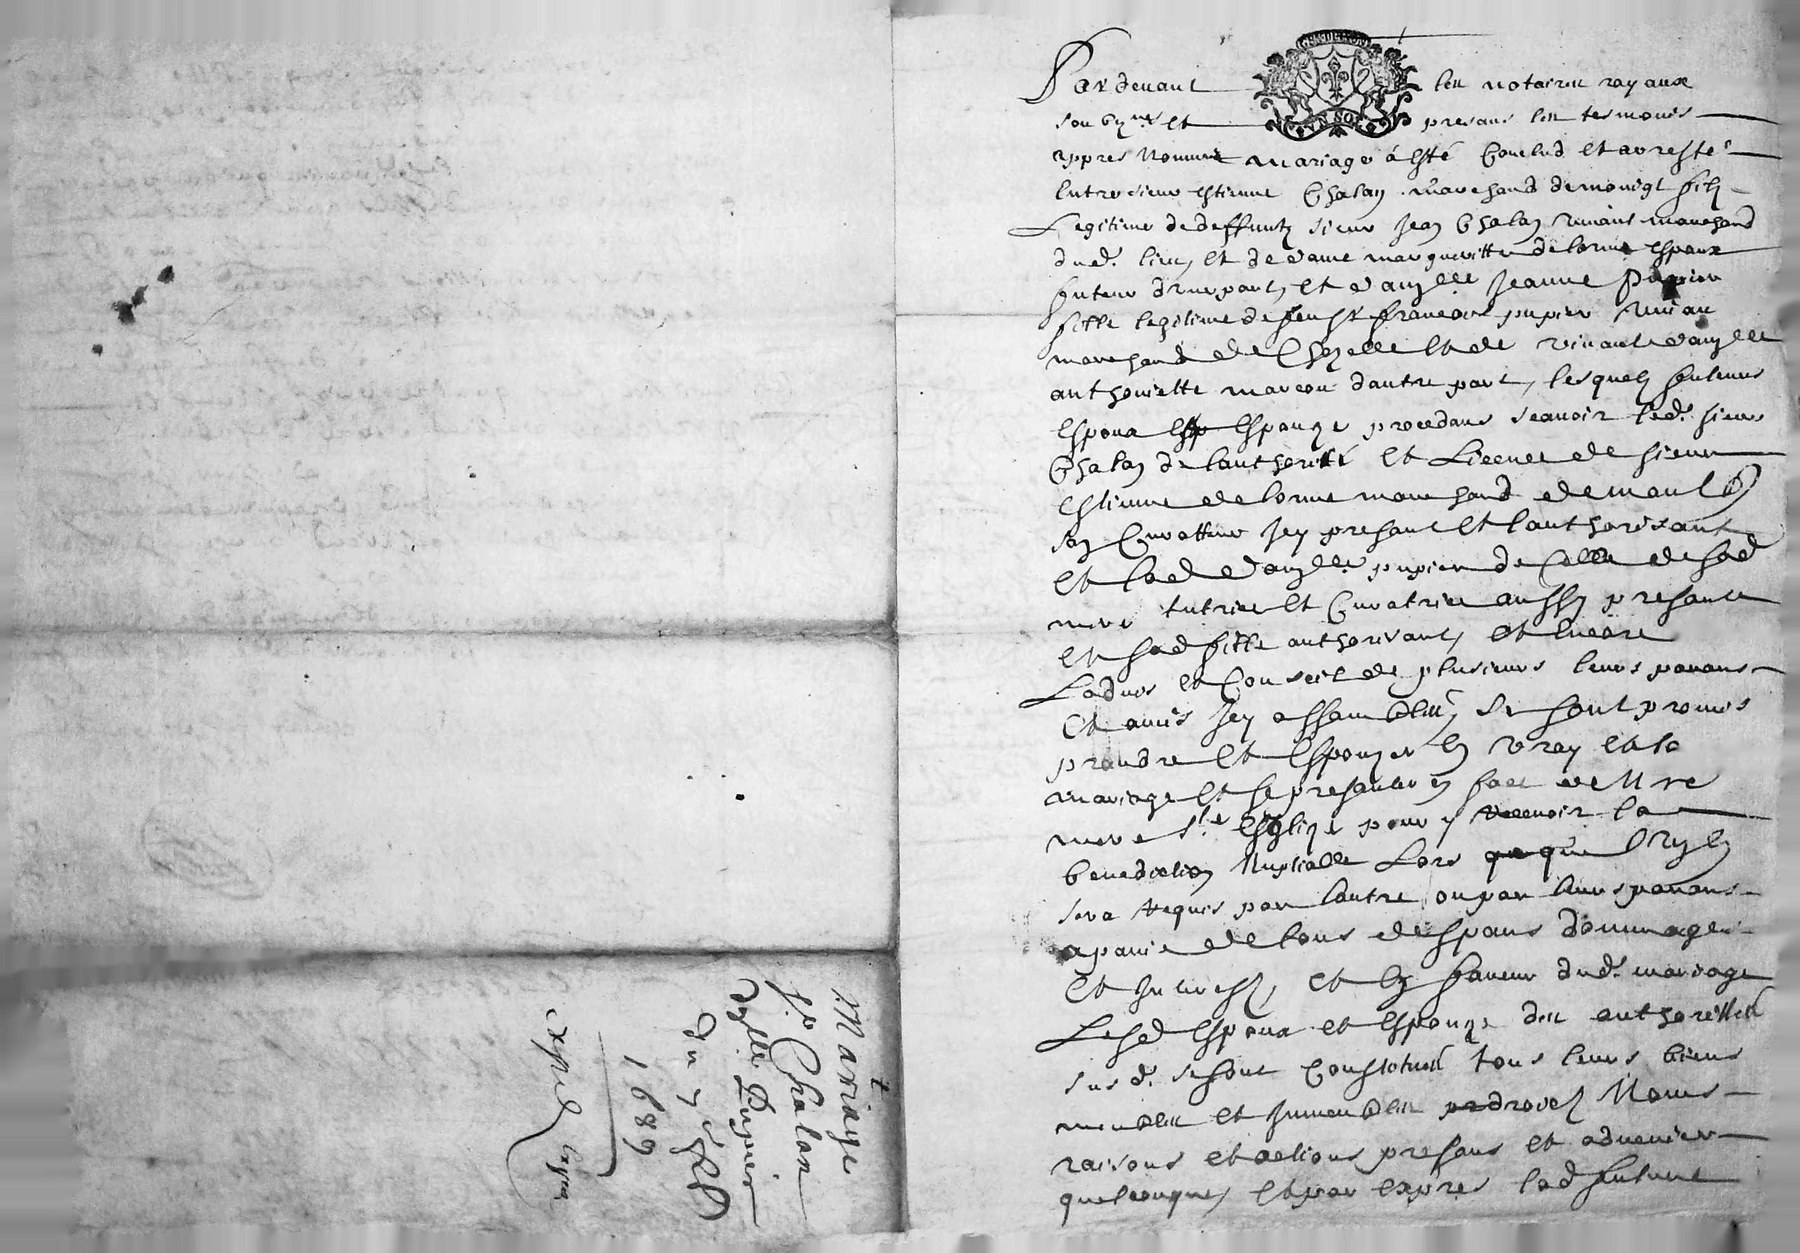 Mariage
Sr Chalan
dglle Pupier
du 7e
1689
exped
GEN DE LION
UN SOL
Pardevant les notaires royaux
soubznés et presans les tesmoins
appres nommes mariage á esté Conclud et arresté
Entre sieur estienne Chalan marchand de monigt filz
Legitime de deffunctz sieur Jean Chalan vivant marchand
dud. lieu, et de dame margueritte delorme espoux
futeur d'une part, et damglle Jeanne Pupier
fille legitime de feu Sr francois pupier vivan
marchand de Chezelle et de vivante damglle
anthoinette marcou dautre part, lesquelz futeurs
Espoux Esp Espouze procedans scavoir led. sieur
Chalan de lauthoritté et Licence de sieur
Estienne delorme marchand de
son Curatteur Jcy presant et lauthorisant
Et lad damglle pupier de Celle de sad
mere tutrice et Curatrice aussy presante
Et sad fille authorisant, et Encore
Ladvis et Conseil de plusieurs leurs parans
Et amis Jcy assemblés, se sont promis
prandre et Espouzer En vray et
mariage et se presanter En face de nre
mere Ste Esglize pour y recevoir la
benediction Nuptialle Lors que que lung
sera requis par lautre ou par leurs parans
a paine de tous despans dommages
Et Interestz, et En faveur dud. mariage
Lesd Espoux et Espouze des authorittés
susd. se sont Constitués tous leurs biens
meubles et Jmmeubles droietz Noms
raisons et actions presans et advenier
quelconques, et par Expres lad future